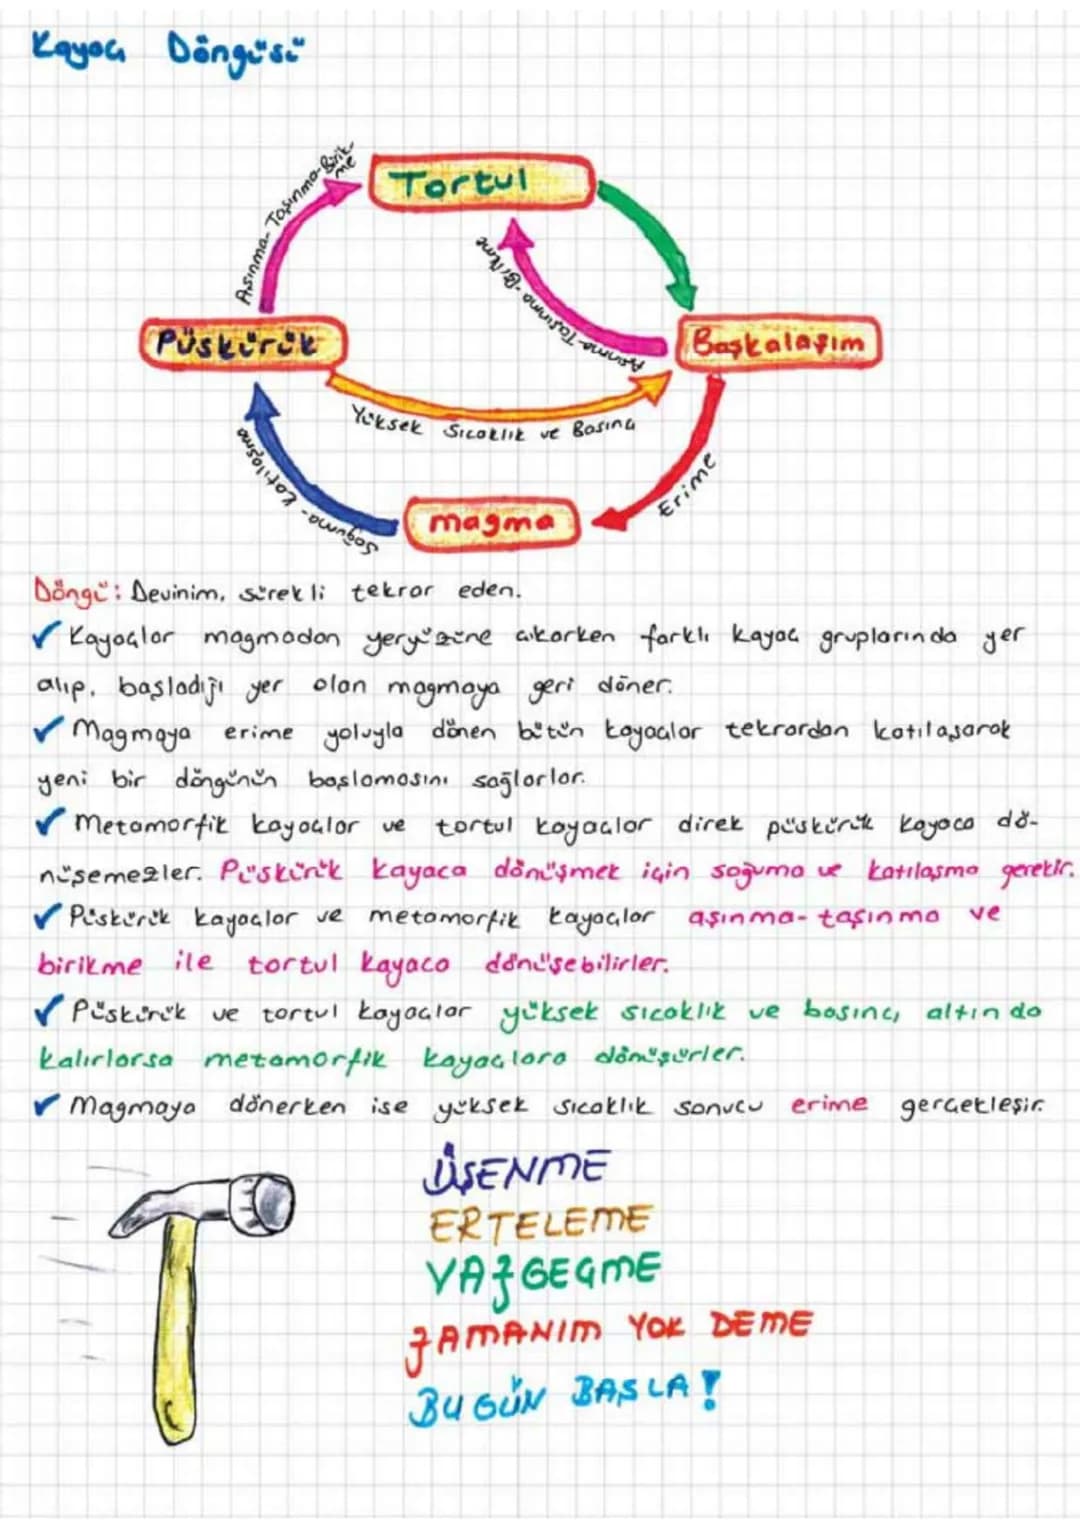 Kayaç Döngüsü
Aşınma-Taşınma-Birik-
me
Tortul
Aşınma-Taşınma-Birikme
Püskürük
Başkalaşım
Yüksek Sıcaklık ve Basınç
Soğuma-Katılaşma
magma
Erime
Döngü: Devinim, sürekli tekrar eden.
✓ Kayaçlar magmadan yeryüzüne çıkarken farklı kayaç gruplarında yer
alıp, başladığı yer olan magmaya geri döner.
✓ Magmaya erime yoluyla dönen bütün kayaçlar tekrardan katılaşarak
yeni bir döngünün başlamasını sağlarlar.
✓ Metamorfik kayaçlar ve tortul kayaçlar direk püskürük kayaca dö-
nüşemezler. Püskürük kayaca dönüşmek için soğuma ve katılaşma gerekir.
✓ Püskürük kayaçlar ve metamorfik kayaçlar aşınma-taşınma ve
birikme ile tortul kayaca dönüşebilirler.
✓ Püskürük ve tortul kayaçlar yüksek sıcaklık ve basınç altında
kalırlarsa metamorfik kayaçlara dönüşürler.
✓ Magmaya dönerken ise yüksek sıcaklık sonucu erime gerçekleşir.
ÜŞENME
ERTELEME
VAZGEÇME
ZAMANIM YOK DEME
BUGÜN BAŞLA!